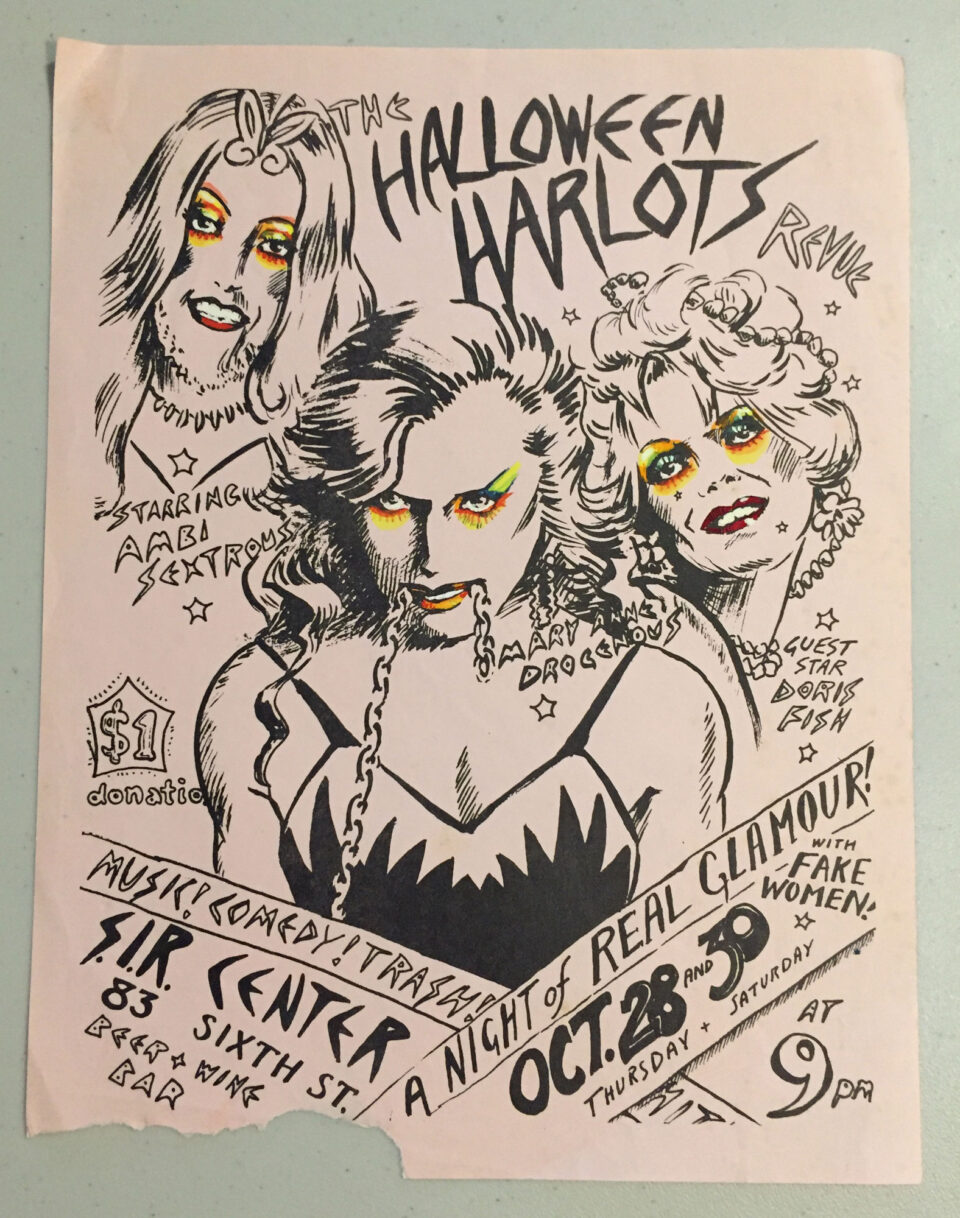 THE
HALLOWEEN
HARLOTS
REVUE
STARRING
AMBI
SEXTROUS
MARY ANNE
DROGENOUS
GUEST
STAR
DORIS
FISH
$1
donatio
MUSIC! COMEDY! TRASH!
A NIGHT of REAL GLAMOUR!
WITH
FAKE
WOMEN!
S.I.R. CENTER
83 SIXTH ST.
BEER + WINE
BAR
OCT. 28 AND 30
THURSDAY + SATURDAY
AT
9 pm